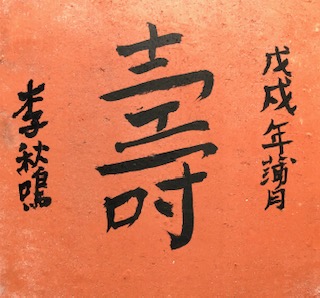 戊戌年蒲月
壽
李秋鳴